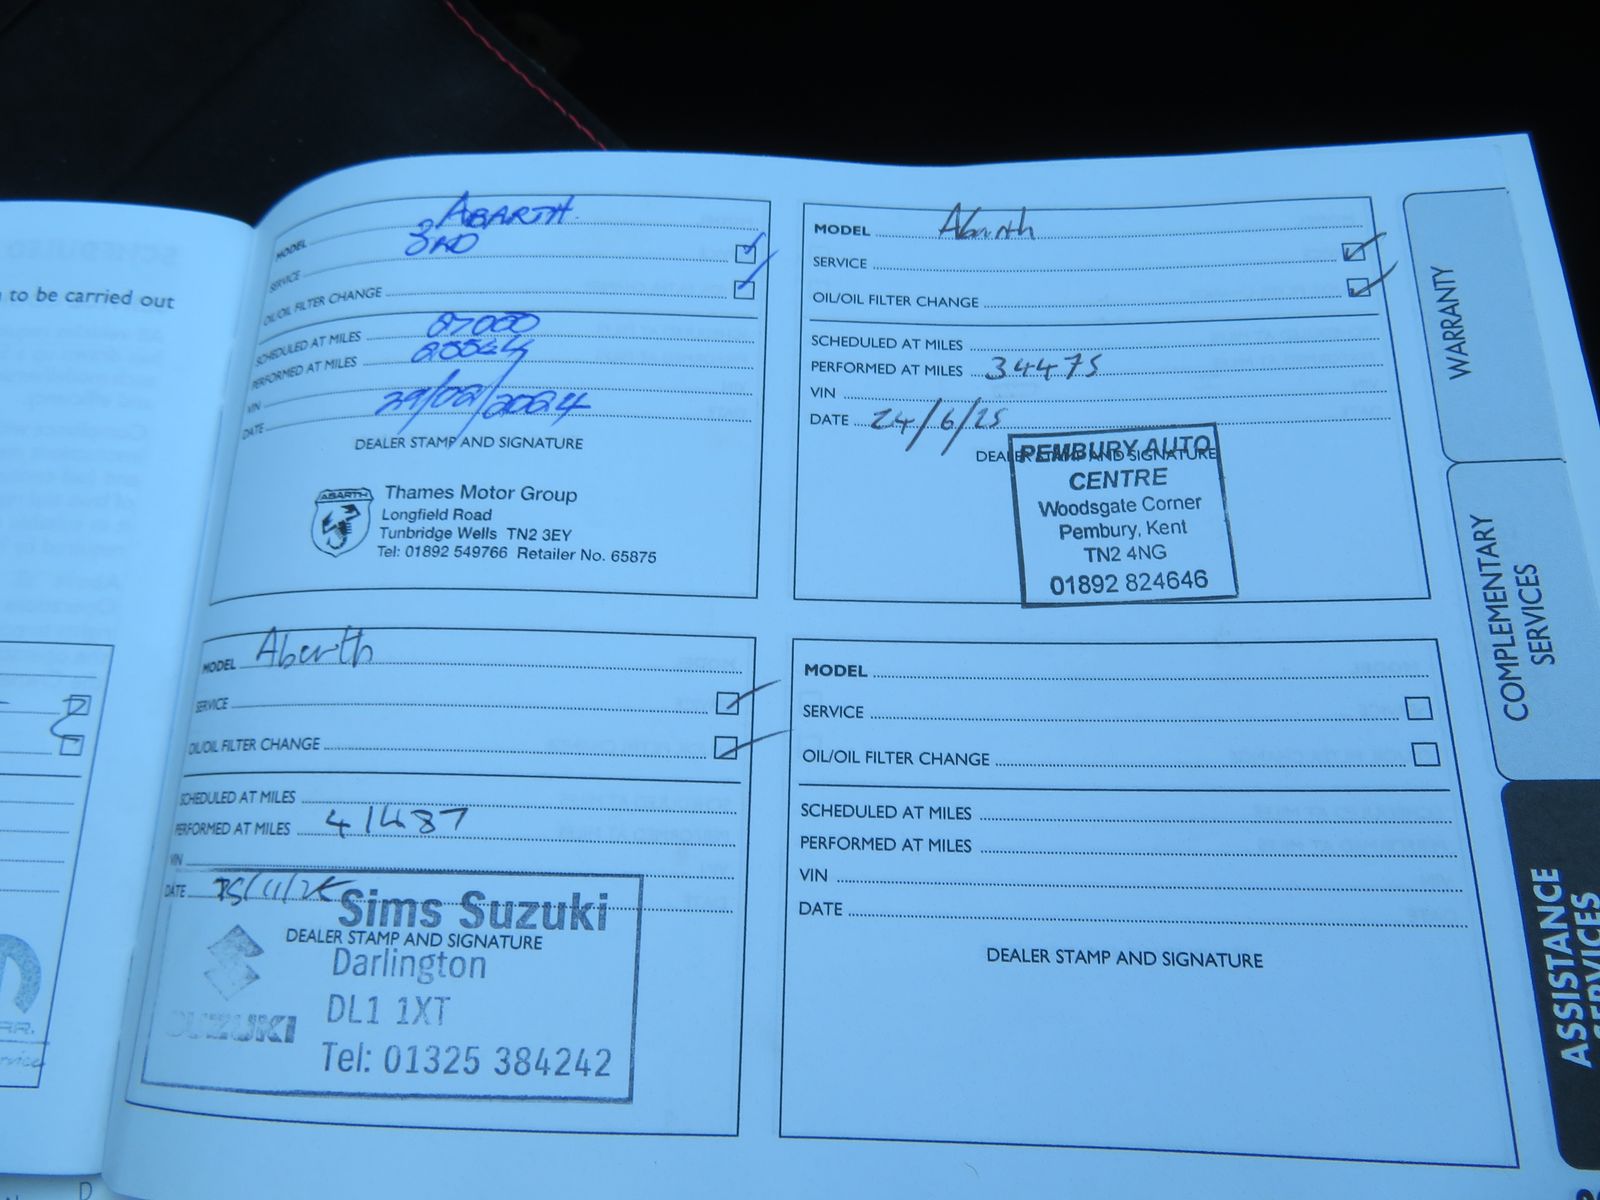 to be carried out
ABARTH
MODEL
3RD
SERVICE
OIL/OIL FILTER CHANGE
SCHEDULED AT MILES 27000
PERFORMED AT MILES
VIN
DATE 29/02/2024
DEALER STAMP AND SIGNATURE
ABARTH
Thames Motor Group
Longfield Road
Tunbridge Wells TN2 3EY
Tel: 01892 549766 Retailer No. 65875
MODEL Abarth
SERVICE
OIL/OIL FILTER CHANGE
SCHEDULED AT MILES
PERFORMED AT MILES 34475
VIN
DATE 24/6/25
DEALER STAMP AND SIGNATURE
PEMBURY AUTO
CENTRE
Woodsgate Corner
Pembury, Kent
TN2 4NG
01892 824646
MODEL Abarth
SERVICE
OIL/OIL FILTER CHANGE
SCHEDULED AT MILES
PERFORMED AT MILES 41487
VIN
DATE
Sims Suzuki
DEALER STAMP AND SIGNATURE
Darlington
DL1 1XT
SUZUKI
Tel: 01325 384242
MODEL
SERVICE
OIL/OIL FILTER CHANGE
SCHEDULED AT MILES
PERFORMED AT MILES
VIN
DATE
DEALER STAMP AND SIGNATURE
WARRANTY
COMPLEMENTARY
SERVICES
ASSISTANCE
SERVICES